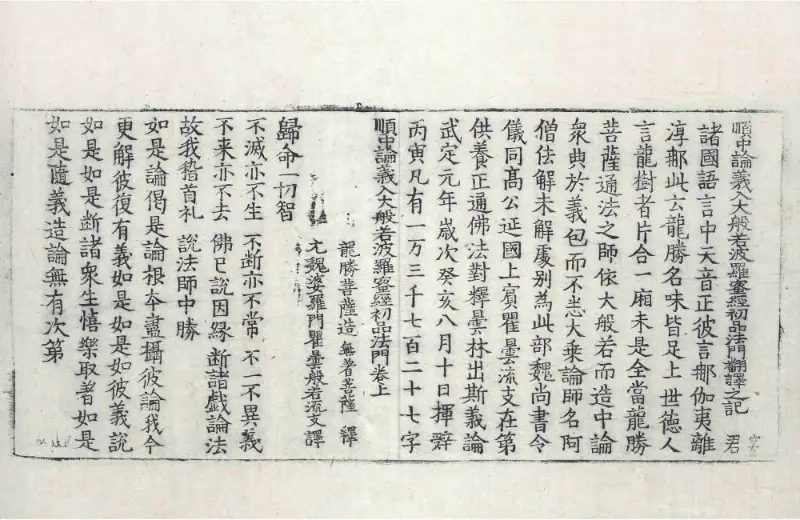 順中論義入大般若波羅蜜經初品法門翻譯之記 君
諸國語言中天音正彼言那伽夷離
淳那此云龍勝名味皆足上世德人
言龍樹者片合一廂未是全當龍勝
菩薩通法之師依大般若而造中論
衆典於義包而不悉大乗論師名阿
僧佉解未解處别為此部魏尚書令
儀同髙公延國上賓瞿曇流支在第
供養正通佛法對釋曇林出斯義論
武定元年歲次癸亥八月十日揮辭
丙寅凡有一万三千七百二十七字
順中論義入大般若波羅蜜經初品法門卷上
龍勝菩薩造 無著菩薩 釋
元魏婆羅門瞿曇般若流支譯
歸命一切智
不滅亦不生 不断亦不常 不一不異義
不来亦不去 佛已說因縁 断諸戯論法
故我𥡴首礼 說法師中勝
如是論偈是論根本盡攝彼論我今
更解彼復有義如是如是如彼義說
如是如是断諸衆生憘樂取著如是
如是隨義造論無有次第